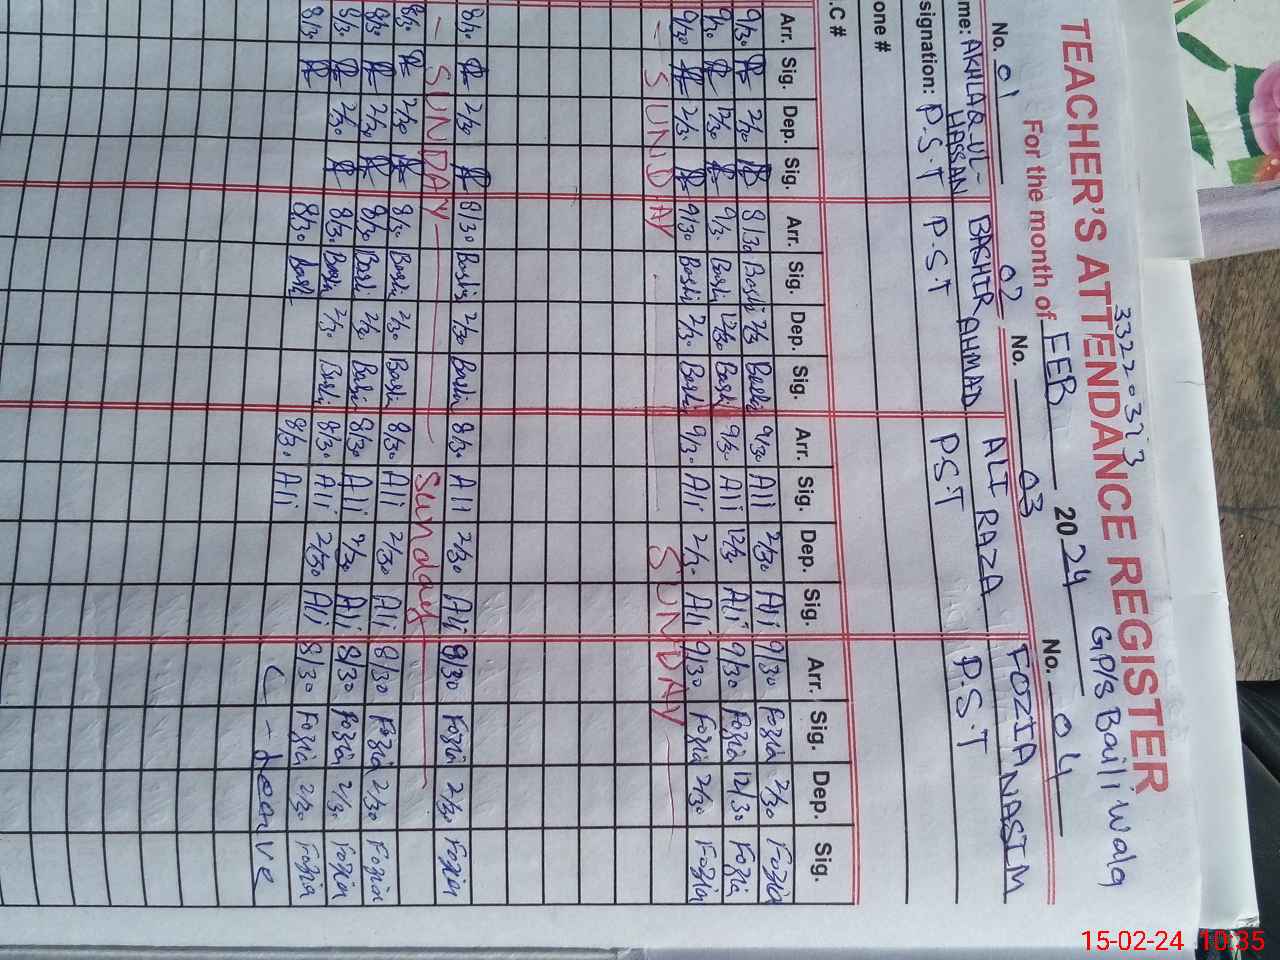 33220373
TEACHER'S ATTENDANCE REGISTER
GP/S Baili wala
For the month of FEB 2024
No. 01 02 No. 03 No. 04
me: AKHLAQ-UL-HASSAN BASHIR AHMAD ALI RAZA FOZIA NASIM
signation: P.S.T P.S.T PST P.S.T
one #
.C #
Arr. Sig. Dep. Sig. Arr. Sig. Dep. Sig. Arr. Sig. Dep. Sig. Arr. Sig. Dep. Sig.
9/30 2/30 8/30 Bashir 2/30 Bashir 9/30 Ali 2/30 Ali 9/30 Fozia 2/30 Fozia
9/30 12/30 9/30 Bashir 12/30 Bashir 9/30 Ali 12/30 Ali 9/30 Fozia 12/30 Fozia
9/30 2/30 9/30 Bashir 2/30 Bashir 9/30 Ali 2/30 Ali 9/30 Fozia 2/30 Fozia
- SUNDAY SUNDAY
8/30 2/30 8/30 Bashir 2/30 Bashir 8/30 Ali 2/30 Ali 8/30 Fozia 2/30 Fozia
- SUNDAY Sunday
8/30 2/30 8/30 Bashir 2/30 Bashir 8/30 Ali 2/30 Ali 8/30 Fozia 2/30 Fozia
8/30 2/30 8/30 Bashir 2/30 Bashir 8/30 Ali 2/30 Ali 8/30 Fozia 2/30 Fozia
8/30 2/30 8/30 Bashir 2/30 Bashir 8/30 Ali 2/30 Ali 8/30 Fozia 2/30 Fozia
8/30 8/30 Bashir 8/30 Ali C - leanve
15-02-24 10:35